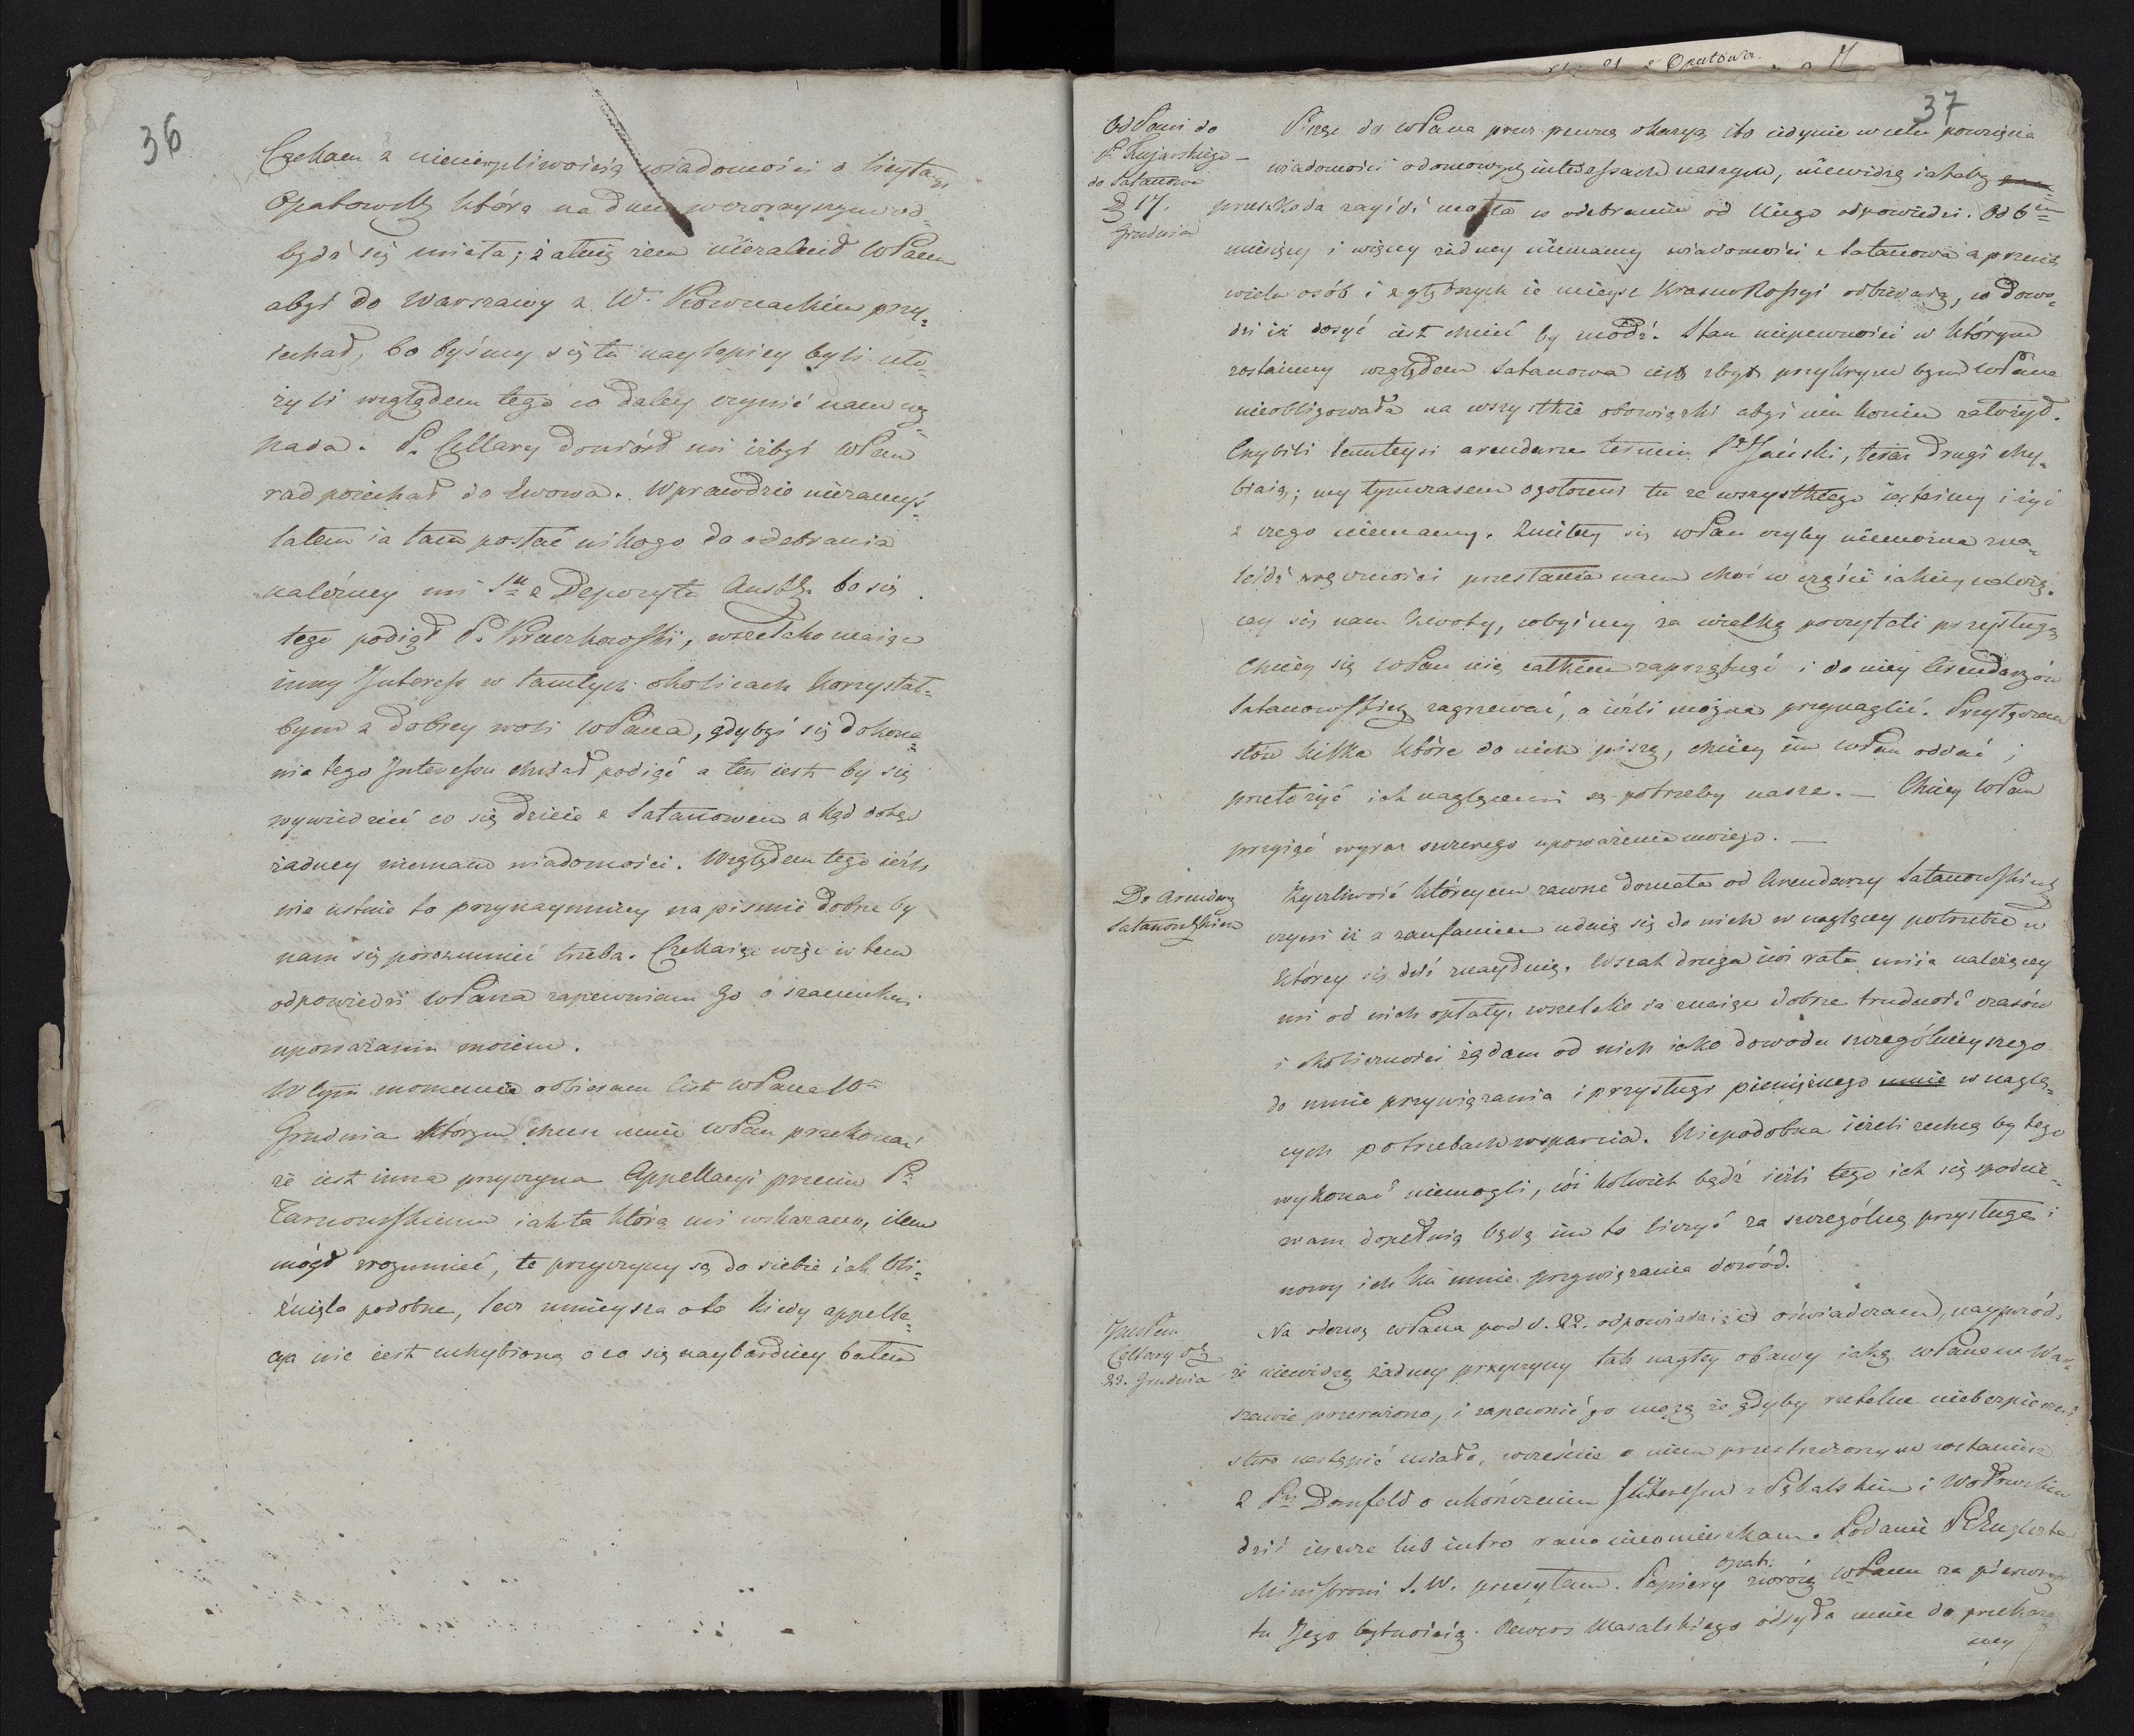 36
Czekam z niecierpliwością wiadomości o licytacyi
Opatowsky która na dniu wczorayszym od=
bydź się miała; żałuię żem niezalecił WPanu
abyś do Warszawy z W. Kownackim przy=
iechał, bo byśmy się tu naylepiey byli uło=
żyli względem tego co daley czynić nam wy=
pada. P. Cellary doniósł mi iżbyś WPan
rad poiechał do Lwowa. Wprawdzie niezamyś=
lałem ia tam posłać nikogo do odebrania
należney mi Sty z Depozytu bo się
tego podiął P. Kruczkowski, wszelako maiąc
inny Interess w tamtych okolicach korzystał=
bym z dobrey woli WPana, gdybyś się dokona=
nia tego Interessu chciał podiąć a ten iest by się
wywiedzieć co się dzieie z Satanowem z kąd dotąd
żadney niemam wiadomości. Względem tego ieżli
nie ustnie to przynaymniey na piśmie dobrze by
nam się porozumieć trzeba. Czekaiąc więc w tem
odpowiedzi WPana zapewniam Go o szacunku i
upoważaniu moiem.
W tym momencie odbieram list WPana 10
Grudnia którym chcesz mnie WPan przekonać
że iest inna przyczyna Appellacyi przeciw P.
Tarnowskiemu iak ta którą mi wskazano, ilem
mógł zrozumieć, te przyczyny są do siebie iak bli=
źnięta podobne, lecz mnieysza oto kiedy appella=
cya nie iest uchybioną o co się naybardziey bałem
37
Opatowa
Od Pani do
P. Kujawskiego
do Satanowa
D 17.
Grudnia
Piszę do WPana przez pewną okazyą ito iedynie w celu powzięcia
wiadomości o domowych interessach naszych, niewidzę iakaby
przeszkoda zayiść mogła w odebraniu od Niego odpowiedzi. Od 6ciu
miesięcy i więcey żadney niemamy wiadomości z Satanowa a przecież
wiele osób i z głębszych ie mieysc Krasno Rossyi odbieraią, co dowo=
dzi iż dosyć iest chcieć by módź. Stan niepewności w którym
zostaiemy względem Satanowa iest zbyt przykrym bym WPana
nieobligowała na wszystkie obowiązki abyś mu koniec założył.
Chybili tamteysi arendarze termin S. Jański, teraz drugi chy=
biaią; my tymczasem ogołoceni tu ze wszystkiego iesteśmy i żyć
z czego niemamy. Zmiłuy się WPan czyby niemożna zna=
leźdź zręczności przesłania nam choć w części iakiey należą=
cey się nam kwoty, cobyśmy za wielką poczytali przysługę
Chciey się WPan nią całkiem zaprzątnąć i do niey Arendarzów
Satanowskich zagrzewać, a ieżli można przynaglić. Przyłączam
słów kilka które do nich piszę, chciey im WPan oddać i
przełożyć iak naglącemi są potrzeby nasze. — Chciey WPan
przyiąć wyraz szczerego upoważenia moiego. —
Do Arendarzy
Satanowskich
Życzliwość któreyem zawsze doznała od Arendarzy Satanowskich
czyni iż z zaufaniem udaię się do nich w naglącey potrzebie w
którey się dziś znayduię. Wszak druga iuż rata miia należącey
mi od nich opłaty, wszelako ia znaiąc dobrze trudność czasów
i okoliczności żądam od nich iako dowodu szczególnieyszego
do mnie przywiązania i przysługi pieniężnego mnie w naglą=
cych potrzebach wsparcia. Niepodobna ieżeli zechcą by tego
wykonać niemogli, cóż kolwiek bądź ieżli tego iak się spodzie=
wam dopełnią będę im to liczyć za szczególną przysługę i
nowy ich ku mnie przywiązania dowód.
Jmć Panu
Cellary
23. Grudnia
Na odezwę WPana pod d. 22. odpowiadaiąc oświadczam, nayprzód,
że niewidzę żadney przyczyny tak nagłey obawy iaką WPana w War=
szawie przerażono, i zapewnić go mogę że gdyby rzetelne niebezpieczeń
stwo nastąpić miało, wcześnie o niem przestrzeżonym zostaniesz
Z Pm Dornfeld o ukończeniu Interessu z Dębalskim i Wołowskim
dziś ieszcze lub iutro rano nieomieszkam. Podanie P
Ministrowi S. W. przesyłam. Papiery opat. zwrócę WPanu za pierwszą
tu Jego bytnością. Rewers Masalskiego odsyła mnie do przekaza
ney